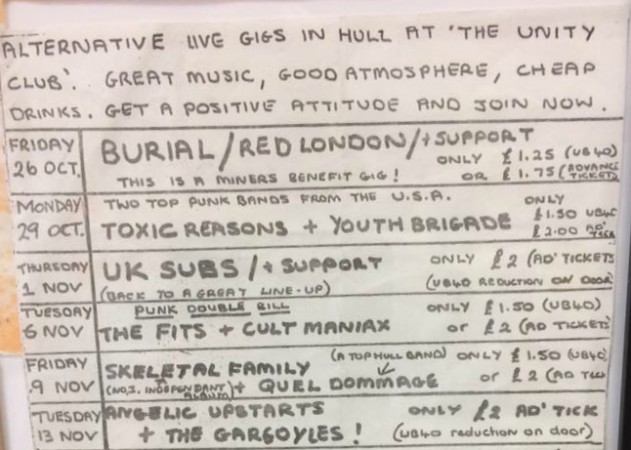 ALTERNATIVE LIVE GIGS IN HULL AT 'THE UNITY
CLUB'. GREAT MUSIC, GOOD ATMOSPHERE, CHEAP
DRINKS. GET A POSITIVE ATTITUDE AND JOIN NOW.
FRIDAY 26 OCT.
BURIAL/RED LONDON/+SUPPORT
THIS IS A MINERS BENEFIT GIG!
ONLY £1.25 (UB40)
OR £1.75 (ADVANCE TICKETS
MONDAY 29 OCT.
TWO TOP PUNK BANDS FROM THE U.S.A.
TOXIC REASONS + YOUTH BRIGADE
ONLY
£1.50 UB40
£2.00 AD' TICK
THURSDAY 1 NOV
UK SUBS/+ SUPPORT
(BACK TO A GREAT LINE-UP)
ONLY £2 (AD' TICKETS
(UB40 REDUCTION ON DOOR)
TUESDAY 6 NOV
PUNK DOUBLE BILL
THE FITS + CULT MANIAX
ONLY £1.50 (UB40)
or £2 (AD TICKETS)
FRIDAY 9 NOV
SKELETAL FAMILY
(NO.1. INDEPENDANT ALBUM)
+ QUEL DOMMAGE
(A TOP HULL BAND)
ONLY £1.50 (UB40)
or £2 (AD TICK
TUESDAY 13 NOV
ANGELIC UPSTARTS
+ THE GARGOYLES!
ONLY £2 AD' TICK
(UB40 reduction on door)